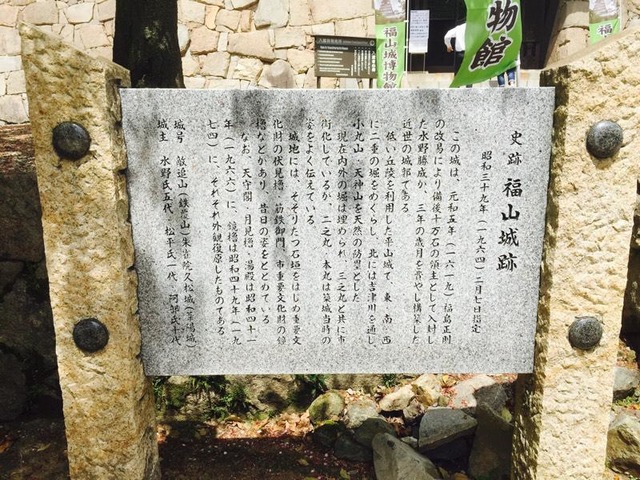 史跡 福山城跡
昭和三十九年(一九六四)二月七日指定
この城は、元和五年(一六一九)福島正則
の改易により備後十万石の領主として入封し
た水野勝成が、三年の歳月を費やし構築した
近世の城郭である。
低い丘陵を利用した平山城で、東・南・西
に二重の堀をめぐらし、北には吉津川を通し、
小丸山・天神山を天然の防塁とした
現在内外の堀は埋められ、三之丸と共に市
街化しているが、二之丸、本丸は築城当時の
姿をよく伝えている。
城地には、そそりたつ石垣をはじめ重要文
化財の伏見櫓、筋鉄御門、市重要文化財の鐘
櫓などがあり、昔日の姿をとどめている。
なお、天守閣、月見櫓、湯殿は昭和四十一
年(一九六六)に、鏡櫓は昭和四十九年(一九
七四)に、それぞれ外観復原したものである。
城号 敵追山(鉄覆山)朱音院久松城(葦陽城)
城主 水野氏五代、松平氏一代、阿部氏十代
福山城博物館
物館